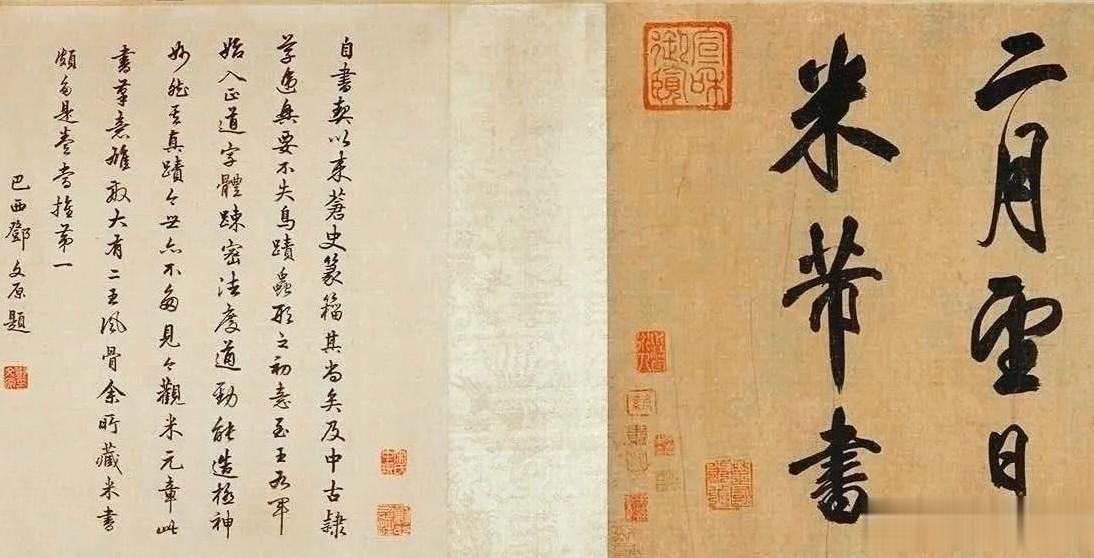 二月望日
米芾書
宣和御覽
自書契以来蒼史篆籀其尚矣及中古隸
学迭興要不失鳥蹟蟲形之初意至王右軍
始入正道字體踈密法度遒勁能造極神
妙然其真蹟今世亦不多見今觀米元章此
書筆意雄放大有二王風骨余所藏米書
頗多是卷當推第一
巴西鄧文原題